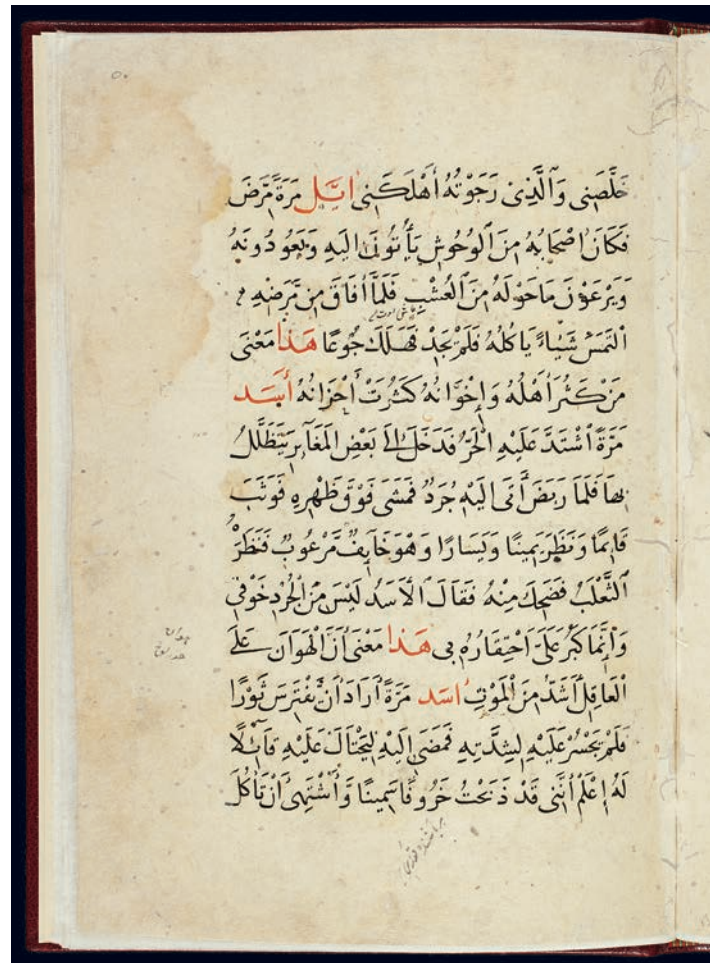 خَلَّصَنِى وَالَّذِىْ رَجَوْتُهُ أَهْلَكَنِى ايَّل مَرَةً مَّرَضَ
فَكَانَ اصْحَابُهُ مِنَ الْوُحُوشِ يَأْتُونَ اِلَيْهِ وَيَعُودُونَهُ
وَيَرْعَوْنَ مَا حَوْلَهُ مِنَ الْعُشْبِ فَلَمَّا أَفَاقَ مِنْ مَّرَضِهِ
الْتَمَسَ شَيْاءً يَاكُلُهُ فَلَمْ يَجِدْ فَهَلَكَ جُوعًا هَذَا مَعْنَى
مَنْ كَثُرَ أَهْلُهُ وَإِخْوَانُهُ كَثُرَتْ أَحْزَانُهُ أَسَد
مَرَّةً اشْتَدَّ عَلَيْهِ الْحَرُّ فَدَخَلَ اِلَى بَعْضِ الْمَغَآيِرِ يَتَظَلَّلُ
بِهَا فَلَمَا رَبَضَ أَتَى اِلَيْهِ جُرَدٌ فَمَشَى فَوْقَ ظَهْرِهِ فَوَثَبَ
قَايِمًا وَنَظَرَ يَمِينًا وَيَسَارًا وَهُوَ خَايِفٌ مَّرْعُوبٌ فَنَظَرَ
الثَّعْلَبُ فَضَحِكَ مِنْهُ فَقَالَ الْأَسَدُ لَيْسَ مِنَ الْجُرَدِ خَوْفِى
وَإِنَّمَا كَبُرَ عَلَىَّ احْتِقَارُهُ بِى هَذَا مَعْنَى أَنَّ الْهَوَانَ عَلَى
الْعَاقِلِ أَشَدُّ مِنَ الْمَوْتِ اسَد مَرَّةً أَرَادَ أَنْ يَفْتَرِسَ ثَوْرًا
فَلَمْ يَجْسُرْ عَلَيْهِ لِشِدَّتِهِ فَمَضَى اِلَيْهِ لِيَحْتَالَ عَلَيْهِ قَآئِلًا
لَهُ إِعْلَمْ أَنَّنِى قَدْ ذَبَحْتُ خَرُوفًا سَمِينًا وَأَشْتَهِى أَنْ تَأْكُلَ